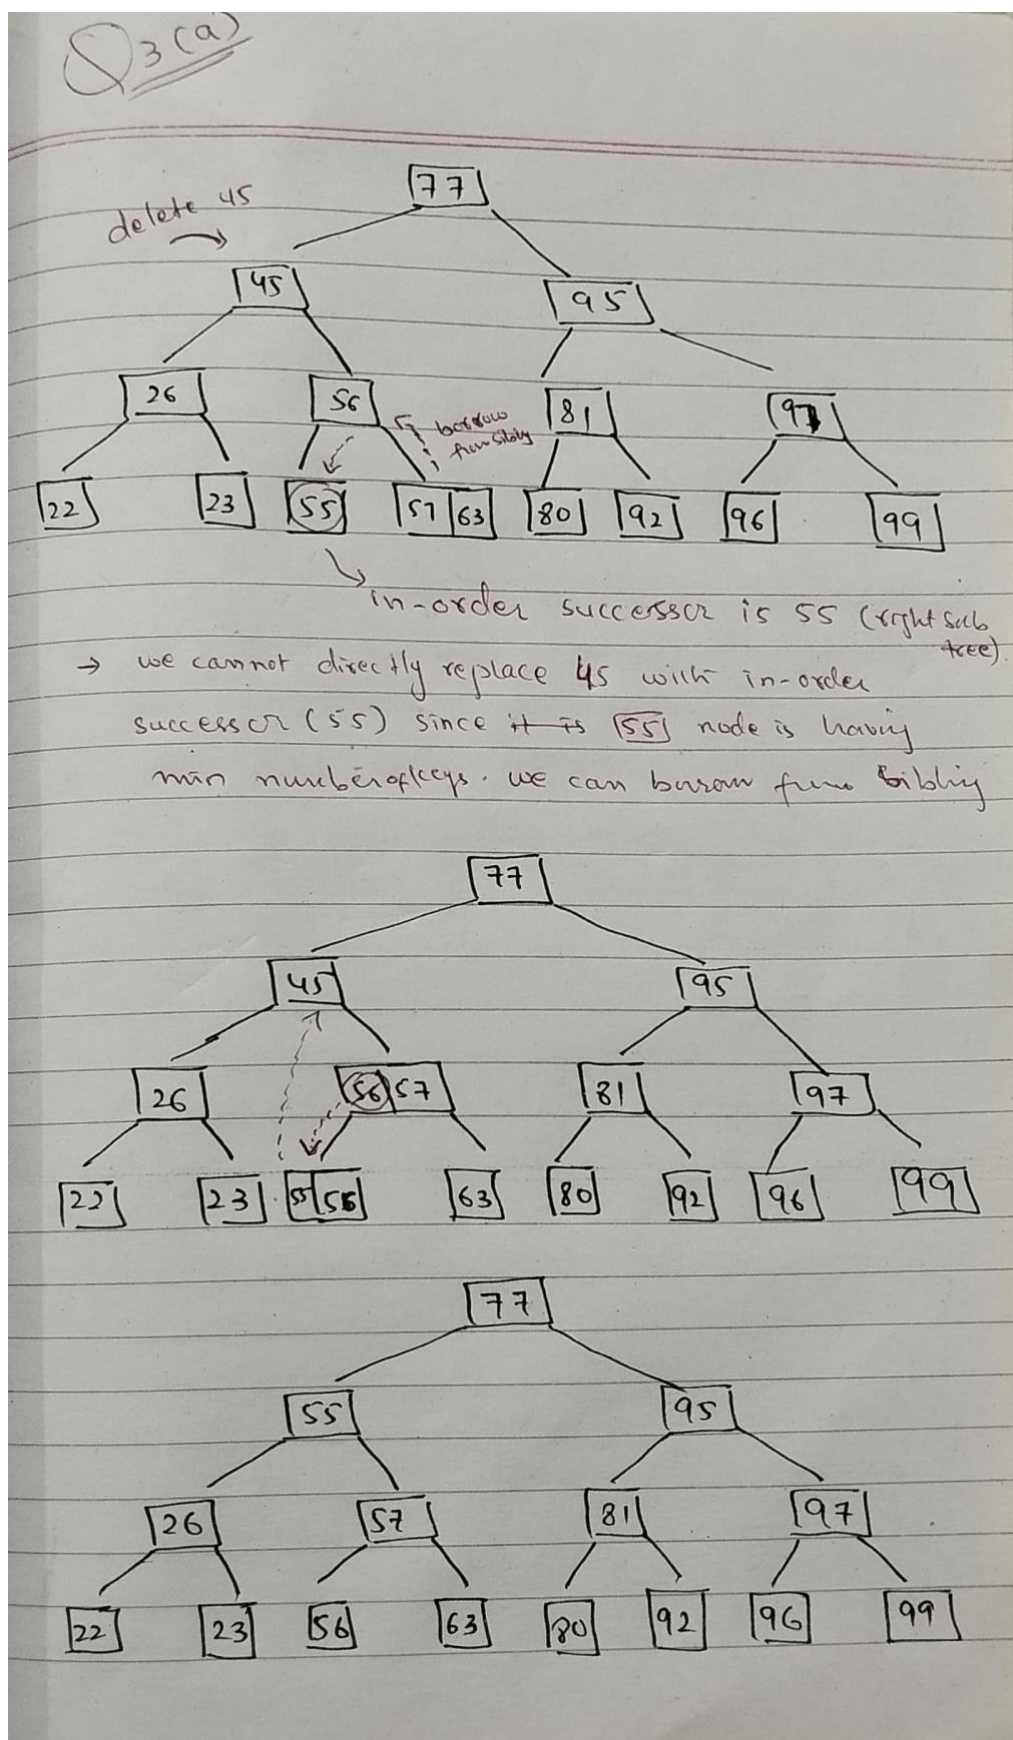 Q3(a)
77
delete 45
45 95
26 56 81 97
borrow
from sibling
22 23 55 57 63 80 92 96 99
in-order successor is 55 (right sub
tree)
→ we cannot directly replace 45 with in-order
successor (55) since it is 55 node is having
min number of keys. we can borrow from sibling
77
45 95
26 56 57 81 97
22 23 55 56 63 80 92 96 99
77
55 95
26 57 81 97
22 23 56 63 80 92 96 99